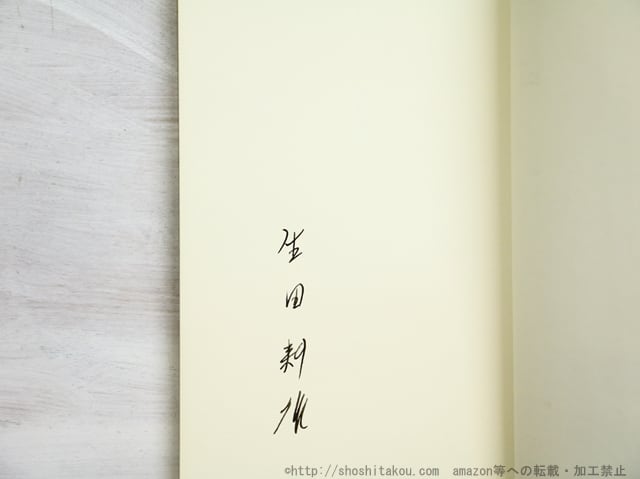 生田耕作
©http://shoshitakou.com amazon等への転載・加工禁止